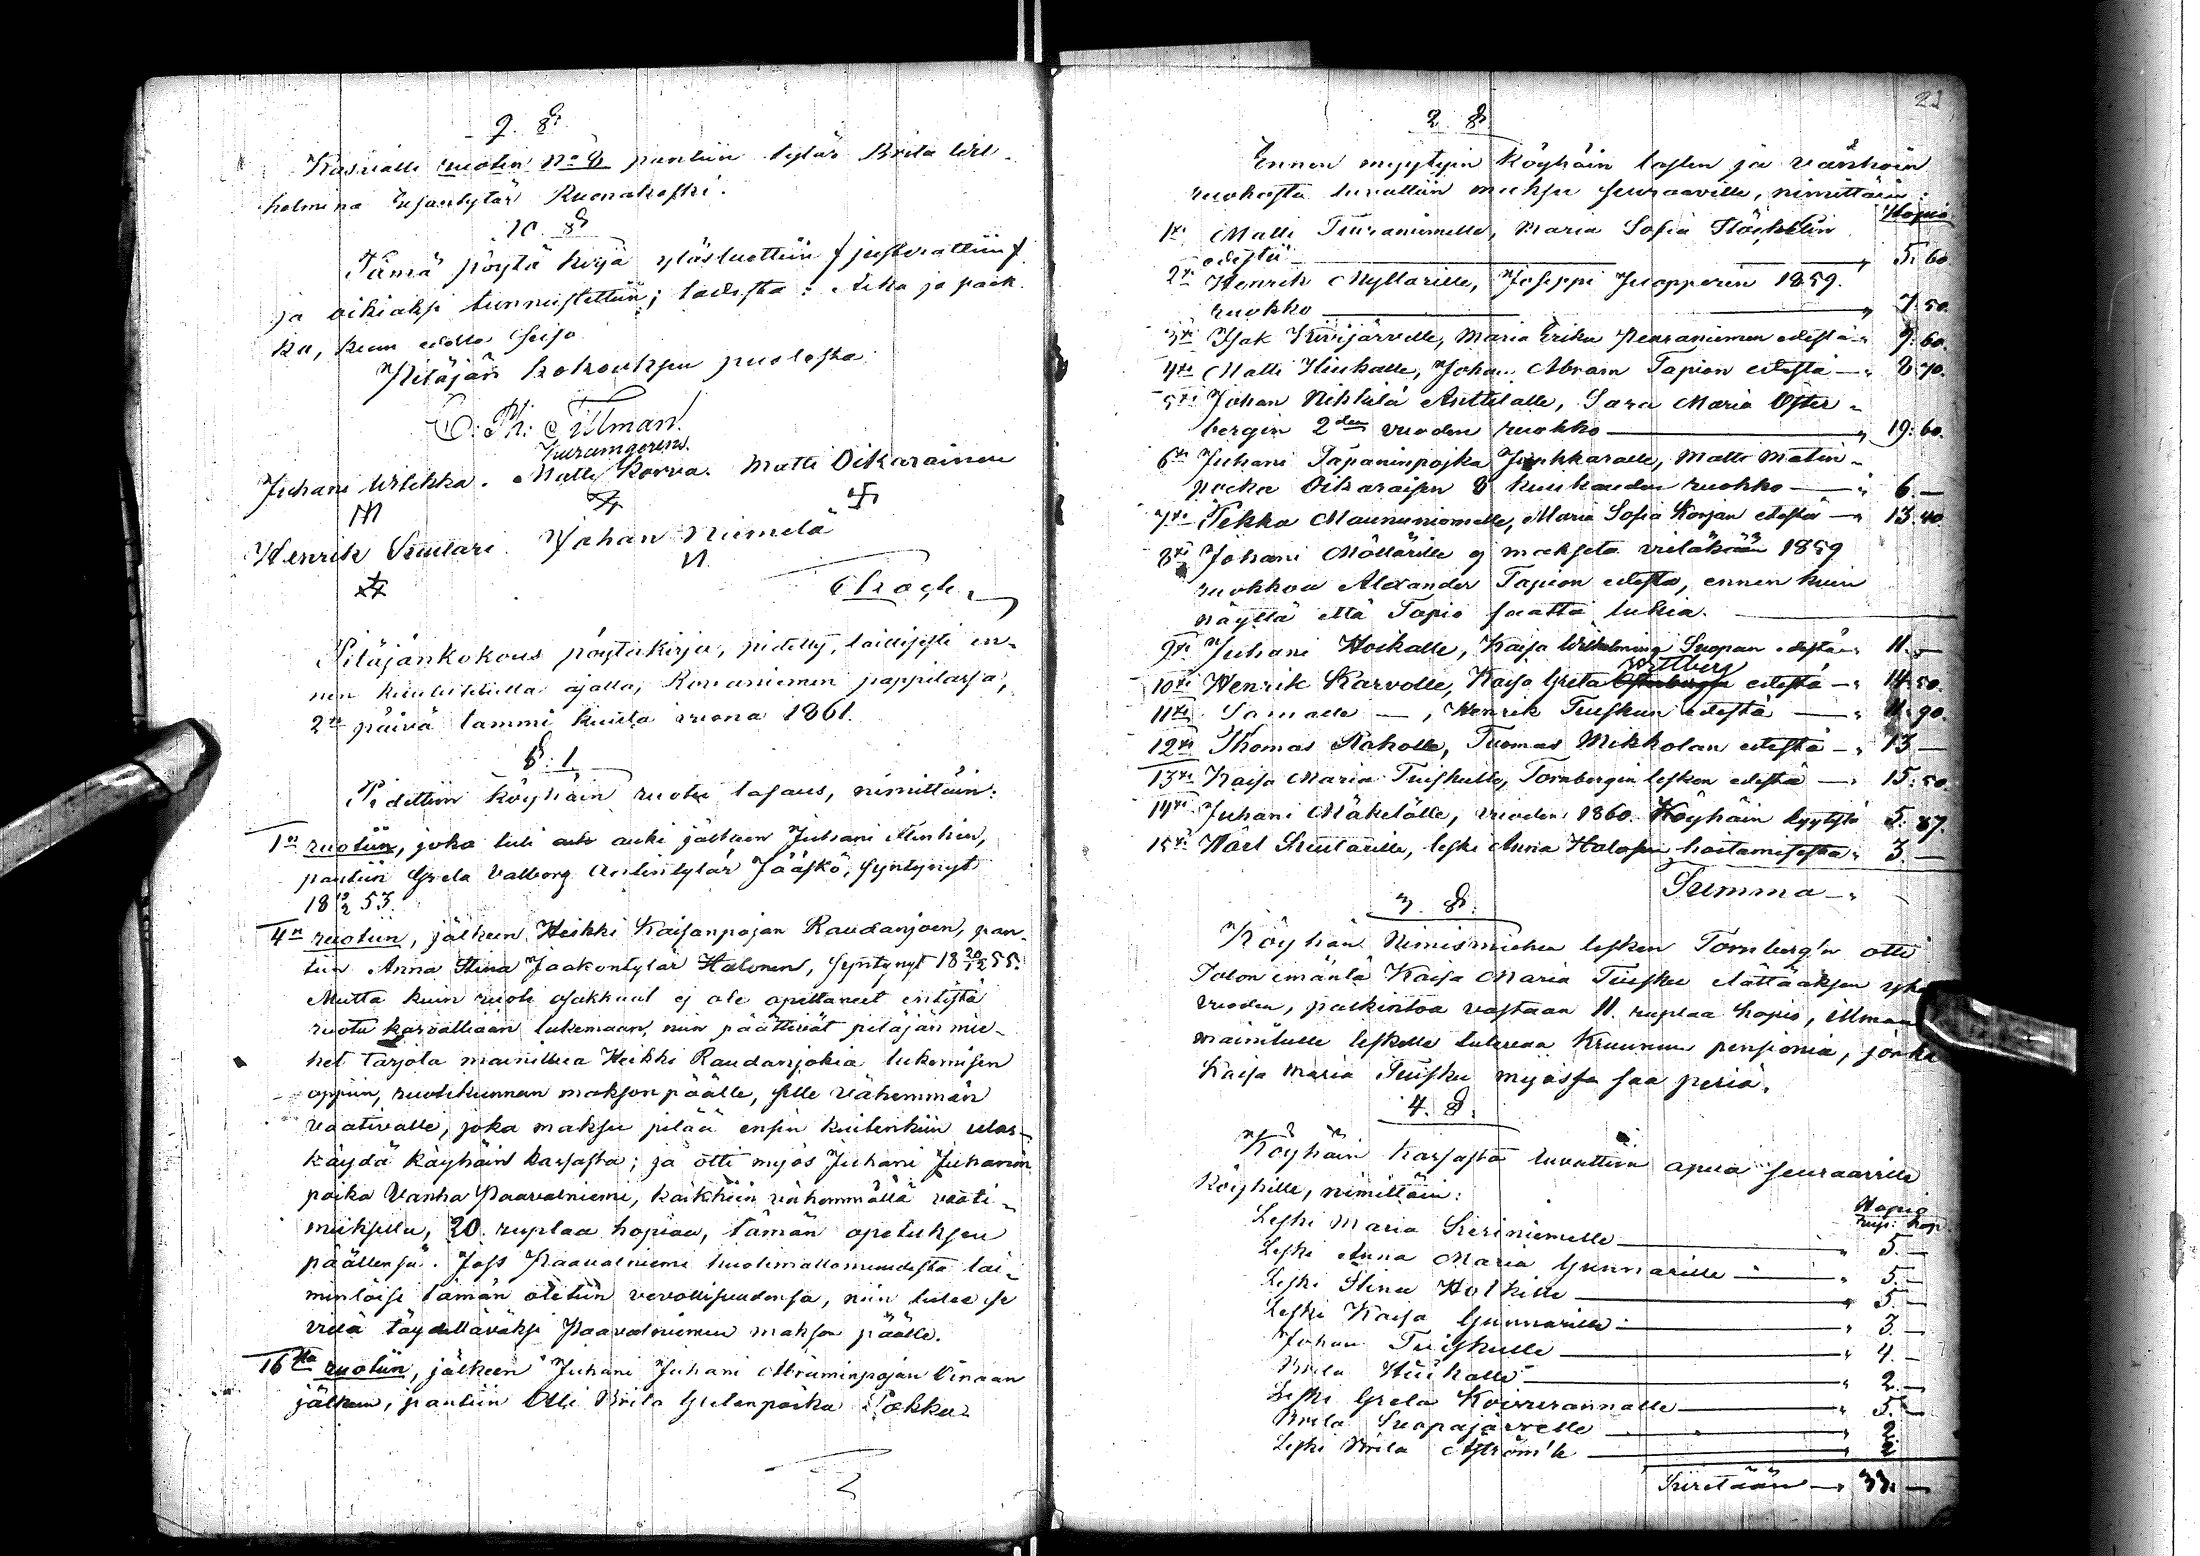 9. §.
Kasvalle ruotin No 8 pantiin tytär Brita Wil-
helmina Erjantytär Kuonakoski.
10 §
Tämä pöytä kirja ylösluettiin / justerattiin /
ja oikiaksi tunnustettiin; todista: Aika ja paik-
ka, kuin edella seiso
Pitäjän kokouksen puolesta
C: Ph: Tillman.
Juhani Wilkka. Matti Korva. Matti Oikarainen
Henrik Sinilari. Johan Niemelä
Pitäjänkokous pöytäkirja, pidetty, laillisesti en-
nen kuulutetulla ajalla, Rovaniemen pappilassa,
2na päivä tammi kuuta vuona 1861.
§. 1
Pidettiin köyhäin ruotu tasaus, nimittäin:
1n ruotiin, joka tuli auki jälkeen Juhani Ainkin,
pantiin Greta Valborg Antintytär Jääskö, syntynyt
18 19/2 53.
4n ruotiin, jälkeen Heikki Kaisanpojan Raudanjoen, pan-
tiin Anna Stina Jaakontytär Halonen, syntynyt 18 20/12 55.
Mutta kuin ruoti osakkaat ej ole opettaneet entistä
ruotu karvalliaan lukemaan, niin päättivät pitäjän mie-
het tarjota mainittua Heikki Raudanjokia lukemisen
oppiin, ruotikunnan makson päälle, sille vähemmän
vaativalle, joka maksu pitää ensin kuitenkin ulos-
käydä käyhäin kassasta; ja otti myös Juhani Juhanin
poika Vanha Paavalniemi, kaikkiin vähemmällä vaati-
muksella, 20. ruplaa hopiaa, tämän opetuksen
päällensä. Joss Paavalniemi huolimattomuudesta lai-
minlöisi tämän otetun velvollisuudensa, niin tulee se
vielä täydettäväksi Paavalniemen makson päälle.
16sta ruotiin, jälkeen Juhani Juhani Abraminpojan Oinaan
jälkeen, pantiin Olli Brita Gretanpoika Pokka
22
2 §.
Ennen myytyin köyhäin lasten ja vanhoin
ruokosta luvattiin maksu seuraaville, nimittäin:
Hopia
1xi Matti Tuuraniemelle, Maria Sofia Stöckelin
edestä " 5. 60
2xi Henrik Myllarille, Joseppi Juopperin 1859.
ruokko " 7. 50.
3xi Isak Kivijärvelle, Maria Erika Peuraniemen edestä " 9. 60.
4xi Matti Hiukalle, Johan Abram Tapion edestä " 8 70.
5xi Johan Nikkilä Anttilalle, Sara Maria Öster-
bergin 2den vuoden ruokko " 19: 60.
6xi Juhani Tapaninpojka Junkkaralle, Matti Matin-
poika Oikaraisen 8 kuukauden ruokko " 6. —
7xi Pekka Maununiemelle, Maria Sofia Korjan edestä " 13. 40
8xi Johani Möllärille ej makseta vieläkään 1859
ruokkoa Alexander Tapion edestä, ennen kuin
näyttä että Tapio saatta lukia.
9xi Juhani Hoikalle, Kaisa Wilhelmina Suopan edestä " 11. —
10xi Henrik Karvolle, Kaisa Greta Wettberg edestä " 14. 50.
11xi Samalle —, Henrik Tuiskun edestä " 11. 90.
12xi Thomas Aholle, Tuomas Mikkolan edestä " 13 —
13xi Kaisa Maria Tuiskulle, Tornbergin lesken edestä " 15. 50.
14xi Juhani Mäkelälle, vuoden 1860. Köyhäin kyytistä 5. 87.
15xi Karl Sinilarille, leski Anna Halosen hoitamisesta " 3. —
Summa "
3. §.
Köyhän Nimismiehen lesken Tornberg'n otti
Talon emäntä Kaisa Maria Tuisku elättääksen yhen
vuoden, palkintoa vastaan 11. ruplaa hopia, ilman
mainitulle leskelle tulevaa Kruunun pensionia, jonka
Kaisa Maria Tuisku myössä saa periä.
4. §.
Köyhäin kassasta luvattiin apua seuraaville
Köyhille, nimittäin:
Hopia
rup: kop
Leski Maria Keriniemelle " 5. —
Leski Anna Maria Gunnarille " 5. —
Leski Stina Holkille " 5. —
Leski Kaisa Gunnarille " 3. —
Johan Tuiskulle " 4. —
Brita Hiukalle " 2. —
Leski Greta Koivurannalle " 5. —
Brita Suopajärvelle " 2.
Leski Brita Åström'lle " 2
Siiretään " 33. —